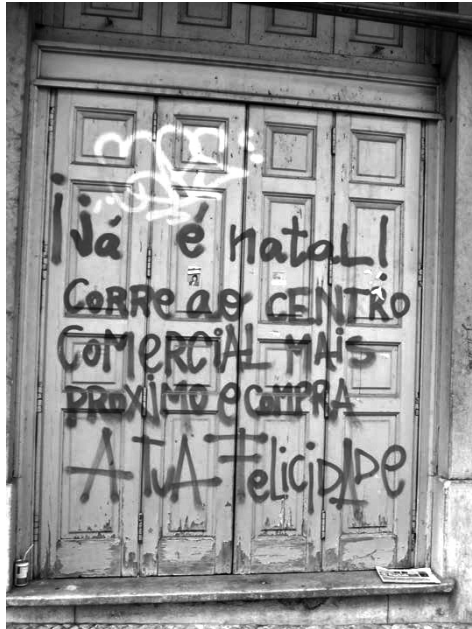 ¡já é natal!
CORRe ao CENtRO
COMeRCiAL MAiS
PROXIMO e COMPRA
A tUA FeLiCiDADe